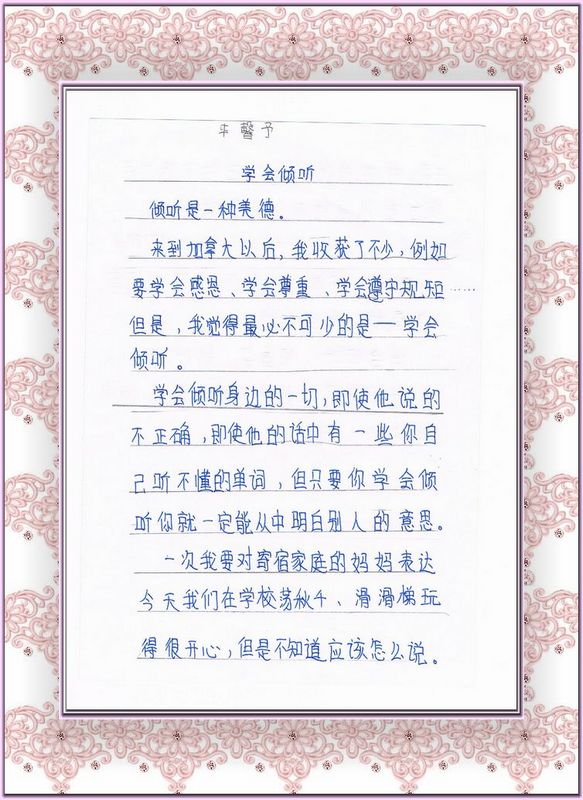 朱馨予
学会倾听
倾听是一种美德。
来到加拿大以后,我收获了不少,例如
要学会感恩、学会尊重、学会遵守规矩……
但是,我觉得最必不可少的是——学会
倾听。
学会倾听身边的一切,即使他说的
不正确,即使他的话中有一些你自
己听不懂的单词,但只要你学会倾
听你就一定能从中明白别人的意思。
一次我要对寄宿家庭的妈妈表达
今天我们在学校荡秋千、滑滑梯玩
得很开心,但是不知道应该怎么说。